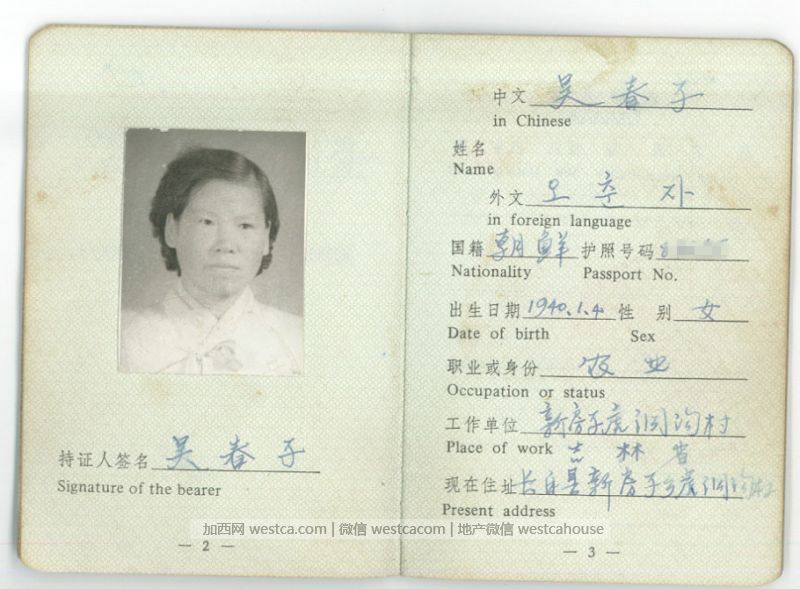 持证人签名 吴春子
Signature of the bearer
— 2 —
中文 吴春子
in Chinese
姓名
Name
外文 오춘자
in foreign language
国籍 朝鲜 护照号码 8
Nationality Passport No.
出生日期 1940.1.4. 性别 女
Date of birth Sex
职业或身份 农业
Occupation or status
工作单位 新房子虎洞沟村
Place of work 吉林省
现在住址 长白县新房子乡虎洞沟村
Present address
— 3 —
加西网 westca.com | 微信 westcacom | 地产微信 westcahouse